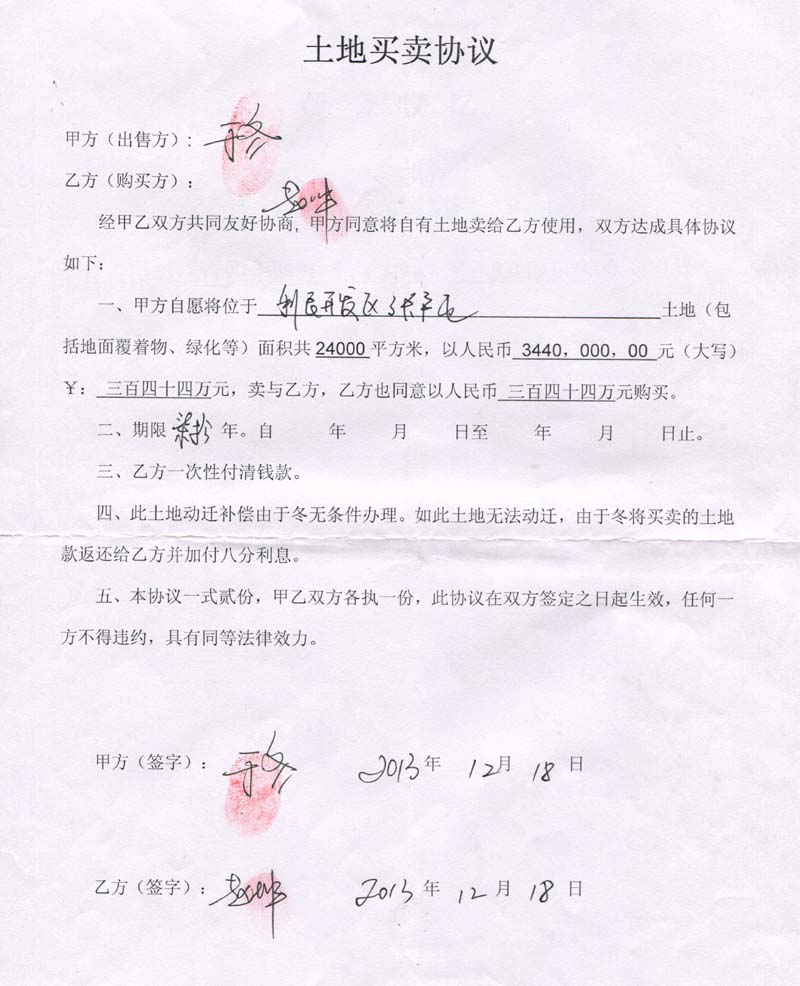 土地买卖协议
甲方（出售方）：于冬
乙方（购买方）：
经甲乙双方共同友好协商，甲方同意将自有土地卖给乙方使用，双方达成具体协议
如下：
一、甲方自愿将位于 开发区 土地（包
括地面覆着物、绿化等）面积共 24000 平方米，以人民币 3440，000，00 元（大写）
￥： 三百四十四万元，卖与乙方，乙方也同意以人民币 三百四十四万元购买。
二、期限 柒拾 年。自 年 月 日至 年 月 日止。
三、乙方一次性付清钱款。
四、此土地动迁补偿由于冬无条件办理。如此土地无法动迁，由于冬将买卖的土地
款返还给乙方并加付八分利息。
五、本协议一式贰份，甲乙双方各执一份，此协议在双方签定之日起生效，任何一
方不得违约，具有同等法律效力。
甲方（签字）：于冬 2013年 12月 18日
乙方（签字）： 2013年 12月 18日